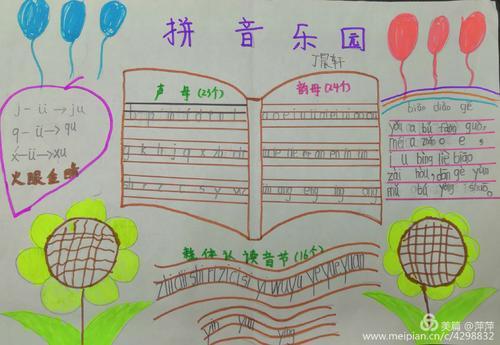 拼音乐园
丁宸轩
j-ü→ju
q-ü→qu
x-ü→xu
火眼金睛
声母(23个)
b p m f d t n l
g k h j q x zh ch
sh r z c s y w
韵母(24个)
a o e i u ü ai ei ui ao ou
iu ie üe er an en in un
ün ang eng ing ong
biāo diào gē
yǒu a bú fàng guò,
méi a zhǎo o e,
i u bìng liè biāo
zài hòu, dān gè yùn
mǔ bú yòng shuō.
整体认读音节(16个)
zhi chi shi ri zi ci si yi wu yu ye yue yuan
yin yun ying
美篇 @萍萍
www.meipian.cn/c/4298832